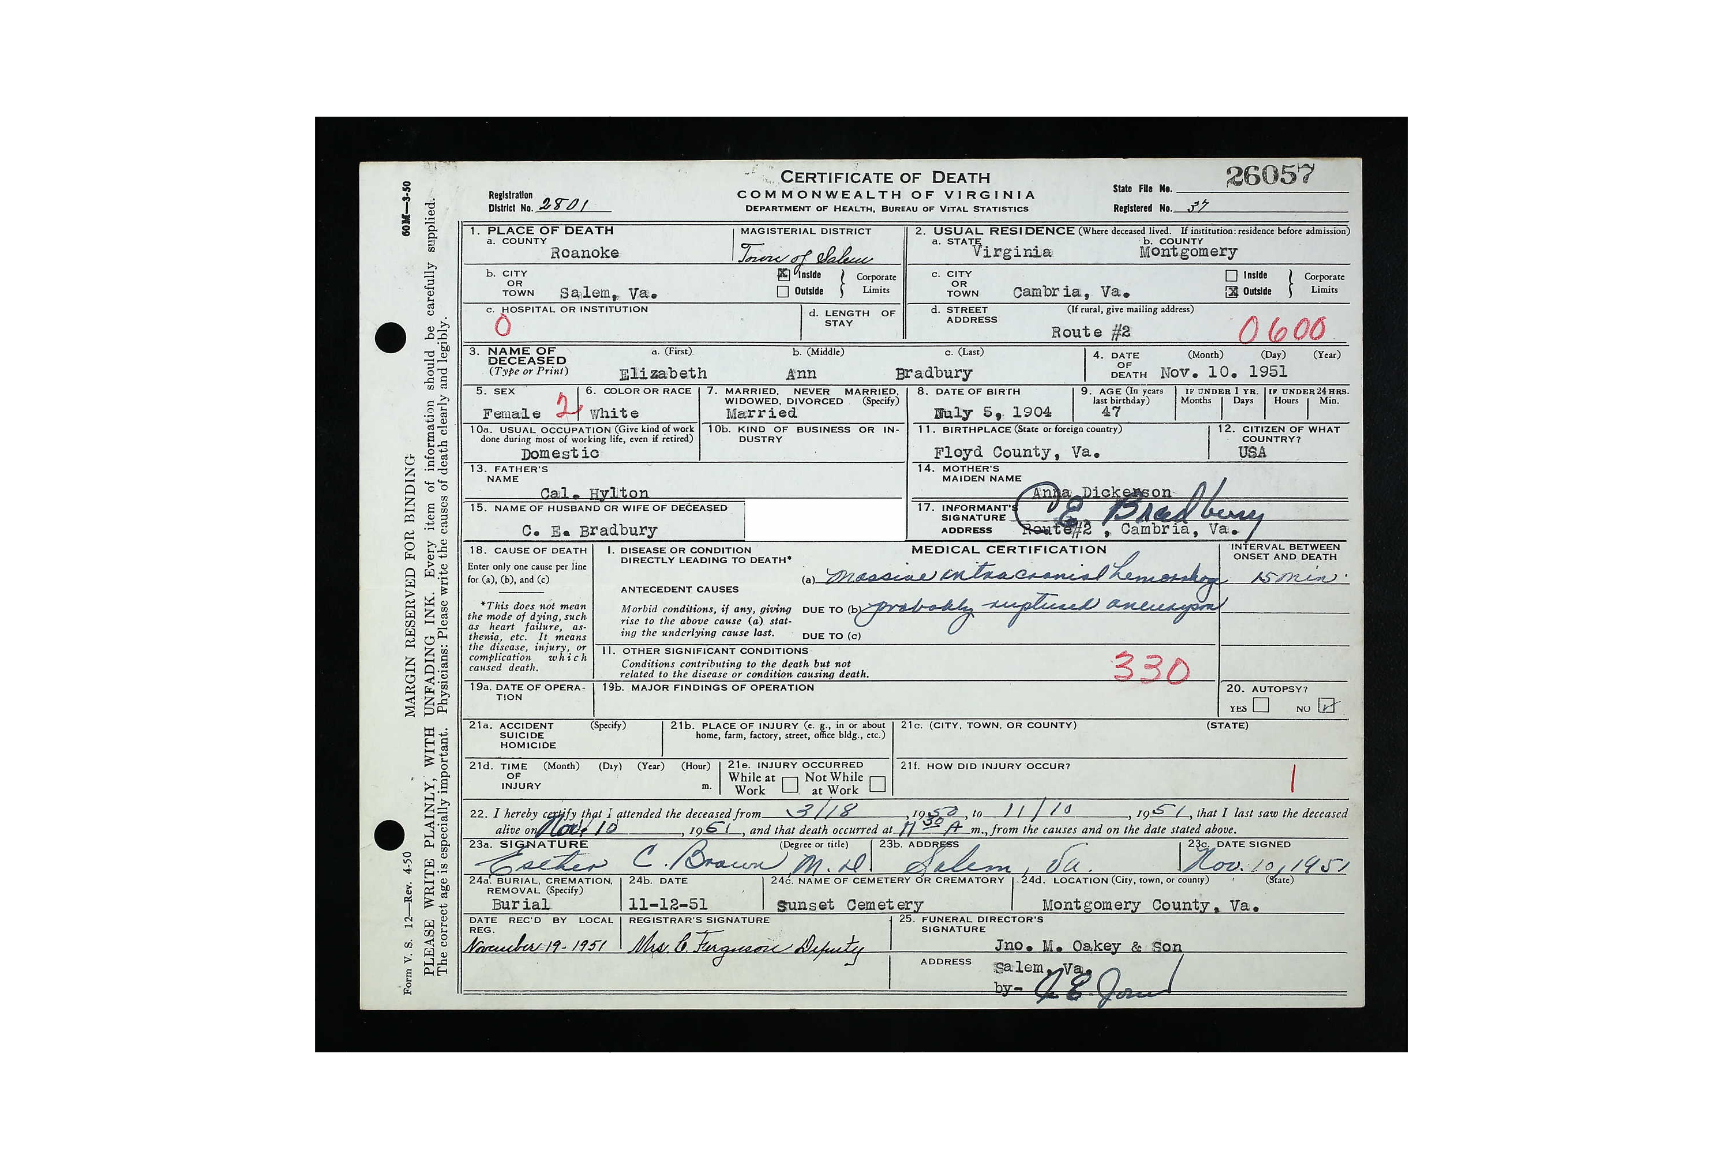 CERTIFICATE OF DEATH
COMMONWEALTH OF VIRGINIA
DEPARTMENT OF HEALTH, BUREAU OF VITAL STATISTICS
Registration District No. 2801
State File No. 26057
Registered No. 37
60M—3-50
MARGIN RESERVED FOR BINDING
Form V. S. 12—Rev. 4-50
PLEASE WRITE PLAINLY, WITH UNFADING INK. Every item of information should be carefully supplied.
The correct age is especially important. Physicians: Please write the causes of death clearly and legibly.
1. PLACE OF DEATH
a. COUNTY Roanoke
MAGISTERIAL DISTRICT Town of Salem
2. USUAL RESIDENCE (Where deceased lived. If institution: residence before admission)
a. STATE Virginia
b. COUNTY Montgomery
b. CITY OR TOWN Salem, Va.
Inside Outside } Corporate Limits
c. CITY OR TOWN Cambria, Va.
Inside Outside } Corporate Limits
c. HOSPITAL OR INSTITUTION
0
d. LENGTH OF STAY
d. STREET ADDRESS (If rural, give mailing address)
Route #2 0600
3. NAME OF DECEASED (Type or Print)
a. (First) Elizabeth
b. (Middle) Ann
c. (Last) Bradbury
4. DATE OF DEATH (Month) (Day) (Year)
Nov. 10. 1951
5. SEX Female 2
6. COLOR OR RACE White
7. MARRIED, NEVER MARRIED, WIDOWED, DIVORCED (Specify) Married
8. DATE OF BIRTH July 5, 1904
9. AGE (In years last birthday) 47
IF UNDER 1 YR. Months Days
IF UNDER 24 HRS. Hours Min.
10a. USUAL OCCUPATION (Give kind of work done during most of working life, even if retired)
Domestic
10b. KIND OF BUSINESS OR INDUSTRY
11. BIRTHPLACE (State or foreign country)
Floyd County, Va.
12. CITIZEN OF WHAT COUNTRY?
USA
13. FATHER'S NAME
Cal. Hylton
14. MOTHER'S MAIDEN NAME
Anna Dickerson
15. NAME OF HUSBAND OR WIFE OF DECEASED
C. E. Bradbury
17. INFORMANT'S SIGNATURE C E Bradbury
ADDRESS Route#2 , Cambria, Va.
18. CAUSE OF DEATH
Enter only one cause per line for (a), (b), and (c)
*This does not mean the mode of dying, such as heart failure, asthenia, etc. It means the disease, injury, or complication which caused death.
MEDICAL CERTIFICATION
INTERVAL BETWEEN ONSET AND DEATH
I. DISEASE OR CONDITION DIRECTLY LEADING TO DEATH*
(a) Massive intracranial hemorrhage 15 min.
ANTECEDENT CAUSES
Morbid conditions, if any, giving rise to the above cause (a) stating the underlying cause last.
DUE TO (b) probably ruptured aneurysm
DUE TO (c)
II. OTHER SIGNIFICANT CONDITIONS
Conditions contributing to the death but not related to the disease or condition causing death.
330
19a. DATE OF OPERATION
19b. MAJOR FINDINGS OF OPERATION
20. AUTOPSY?
YES NO
21a. ACCIDENT SUICIDE HOMICIDE (Specify)
21b. PLACE OF INJURY (e. g., in or about home, farm, factory, street, office bldg., etc.)
21c. (CITY, TOWN, OR COUNTY) (STATE)
21d. TIME OF INJURY (Month) (Day) (Year) (Hour) m.
21e. INJURY OCCURRED
While at Work Not While at Work
21f. HOW DID INJURY OCCUR?
1
22. I hereby certify that I attended the deceased from 3/18, 1950, to 11/10, 1951, that I last saw the deceased
alive on Nov. 10, 1951, and that death occurred at 11 30 A m., from the causes and on the date stated above.
23a. SIGNATURE (Degree or title)
Esther C. Brown M. D.
23b. ADDRESS
Salem, Va.
23c. DATE SIGNED
Nov. 10, 1951
24a. BURIAL, CREMATION, REMOVAL (Specify)
Burial
24b. DATE
11-12-51
24c. NAME OF CEMETERY OR CREMATORY
Sunset Cemetery
24d. LOCATION (City, town, or county) (State)
Montgomery County, Va.
DATE REC'D BY LOCAL REG.
November 19-1951
REGISTRAR'S SIGNATURE
Mrs. C. Ferguson Deputy
25. FUNERAL DIRECTOR'S SIGNATURE
Jno. M. Oakey & Son
ADDRESS Salem, Va.
by-